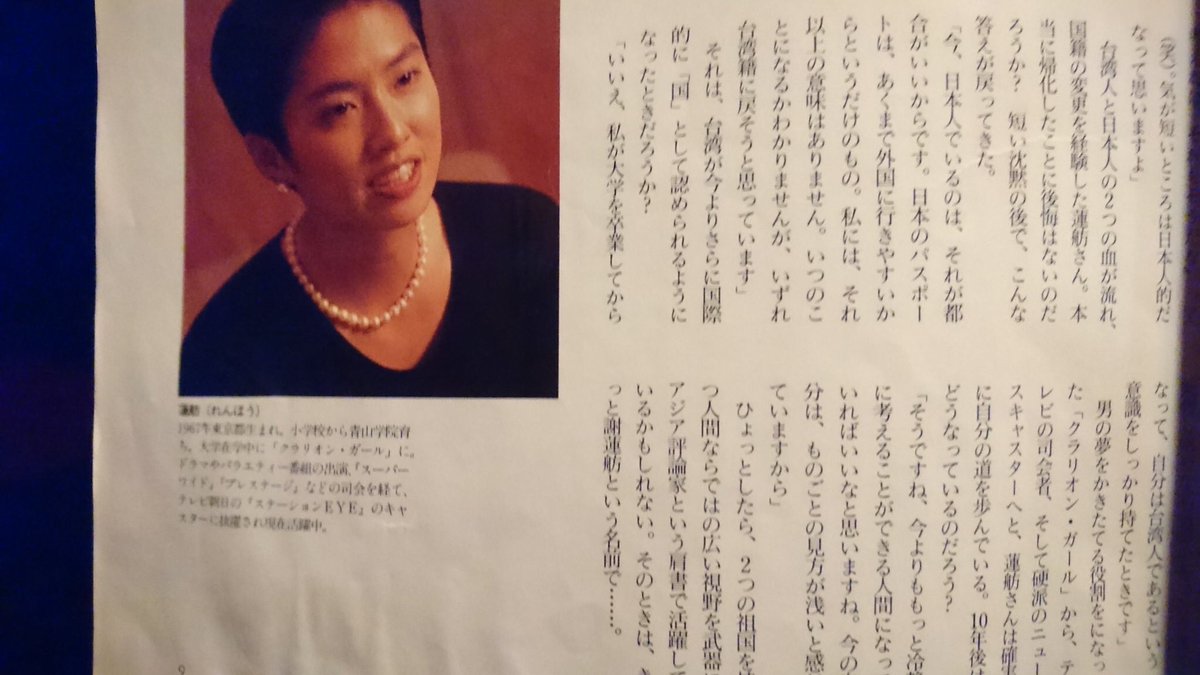 (笑)。気が短いところは日本人的だ
なって思いますよ」
台湾人と日本人の2つの血が流れ、
国籍の変更を経験した蓮舫さん。本
当に帰化したことに後悔はないのだ
ろうか? 短い沈黙の後で、こんな
答えが戻ってきた。
「今、日本人でいるのは、それが都
合がいいからです。日本のパスポー
トは、あくまで外国に行きやすいか
らというだけのもの。私には、それ
以上の意味はありません。いつのこ
とになるかわかりませんが、いずれ
台湾籍に戻そうと思っています」
それは、台湾が今よりさらに国際
的に「国」として認められるように
なったときだろうか?
「いいえ、私が大学を卒業してから
なって、自分は台湾人であるという
意識をしっかり持てたときです」
男の夢をかきたてる役割をになっ
た「クラリオン・ガール」から、テ
レビの司会者、そして硬派のニュー
スキャスターへと、蓮舫さんは確実
に自分の道を歩んでいる。10年後は
どうなっているのだろう?
「そうですね、今よりももっと冷静
に考えることができる人間になっ
いればいいなと思いますね。今の
分は、ものごとの見方が浅いと感
ていますから」
ひょっとしたら、2つの祖国を
つ人間ならではの広い視野を武器
アジア評論家という肩書で活躍し
いるかもしれない。そのときは、き
っと謝蓮舫という名前で……。
蓮舫(れんほう)
1967年東京都生まれ。小学校から青山学院育
ち。大学在学中に「クラリオン・ガール」に。
ドラマやバラエティー番組の出演、『スーパー
ワイド』『プレステージ』などの司会を経て、
テレビ朝日の『ステーションEYE』のキャ
スターに抜擢され現在活躍中。
9